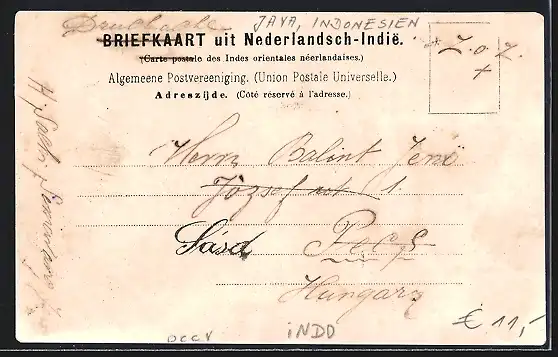 Drucksache
JAVA, INDONESIEN
BRIEFKAART uit Nederlandsch-Indië.
(Carte postale des Indes orientales néerlandaises.)
Algemeene Postvereeniging. (Union Postale Universelle.)
Adreszijde. (Côté réservé à l'adresse.)
Z.O.Z.
Herrn Balint Jenö
József 1.
Sásd Pécs
Hungary
H. Sachs, Semarang, Java
€ 11,-
INDO